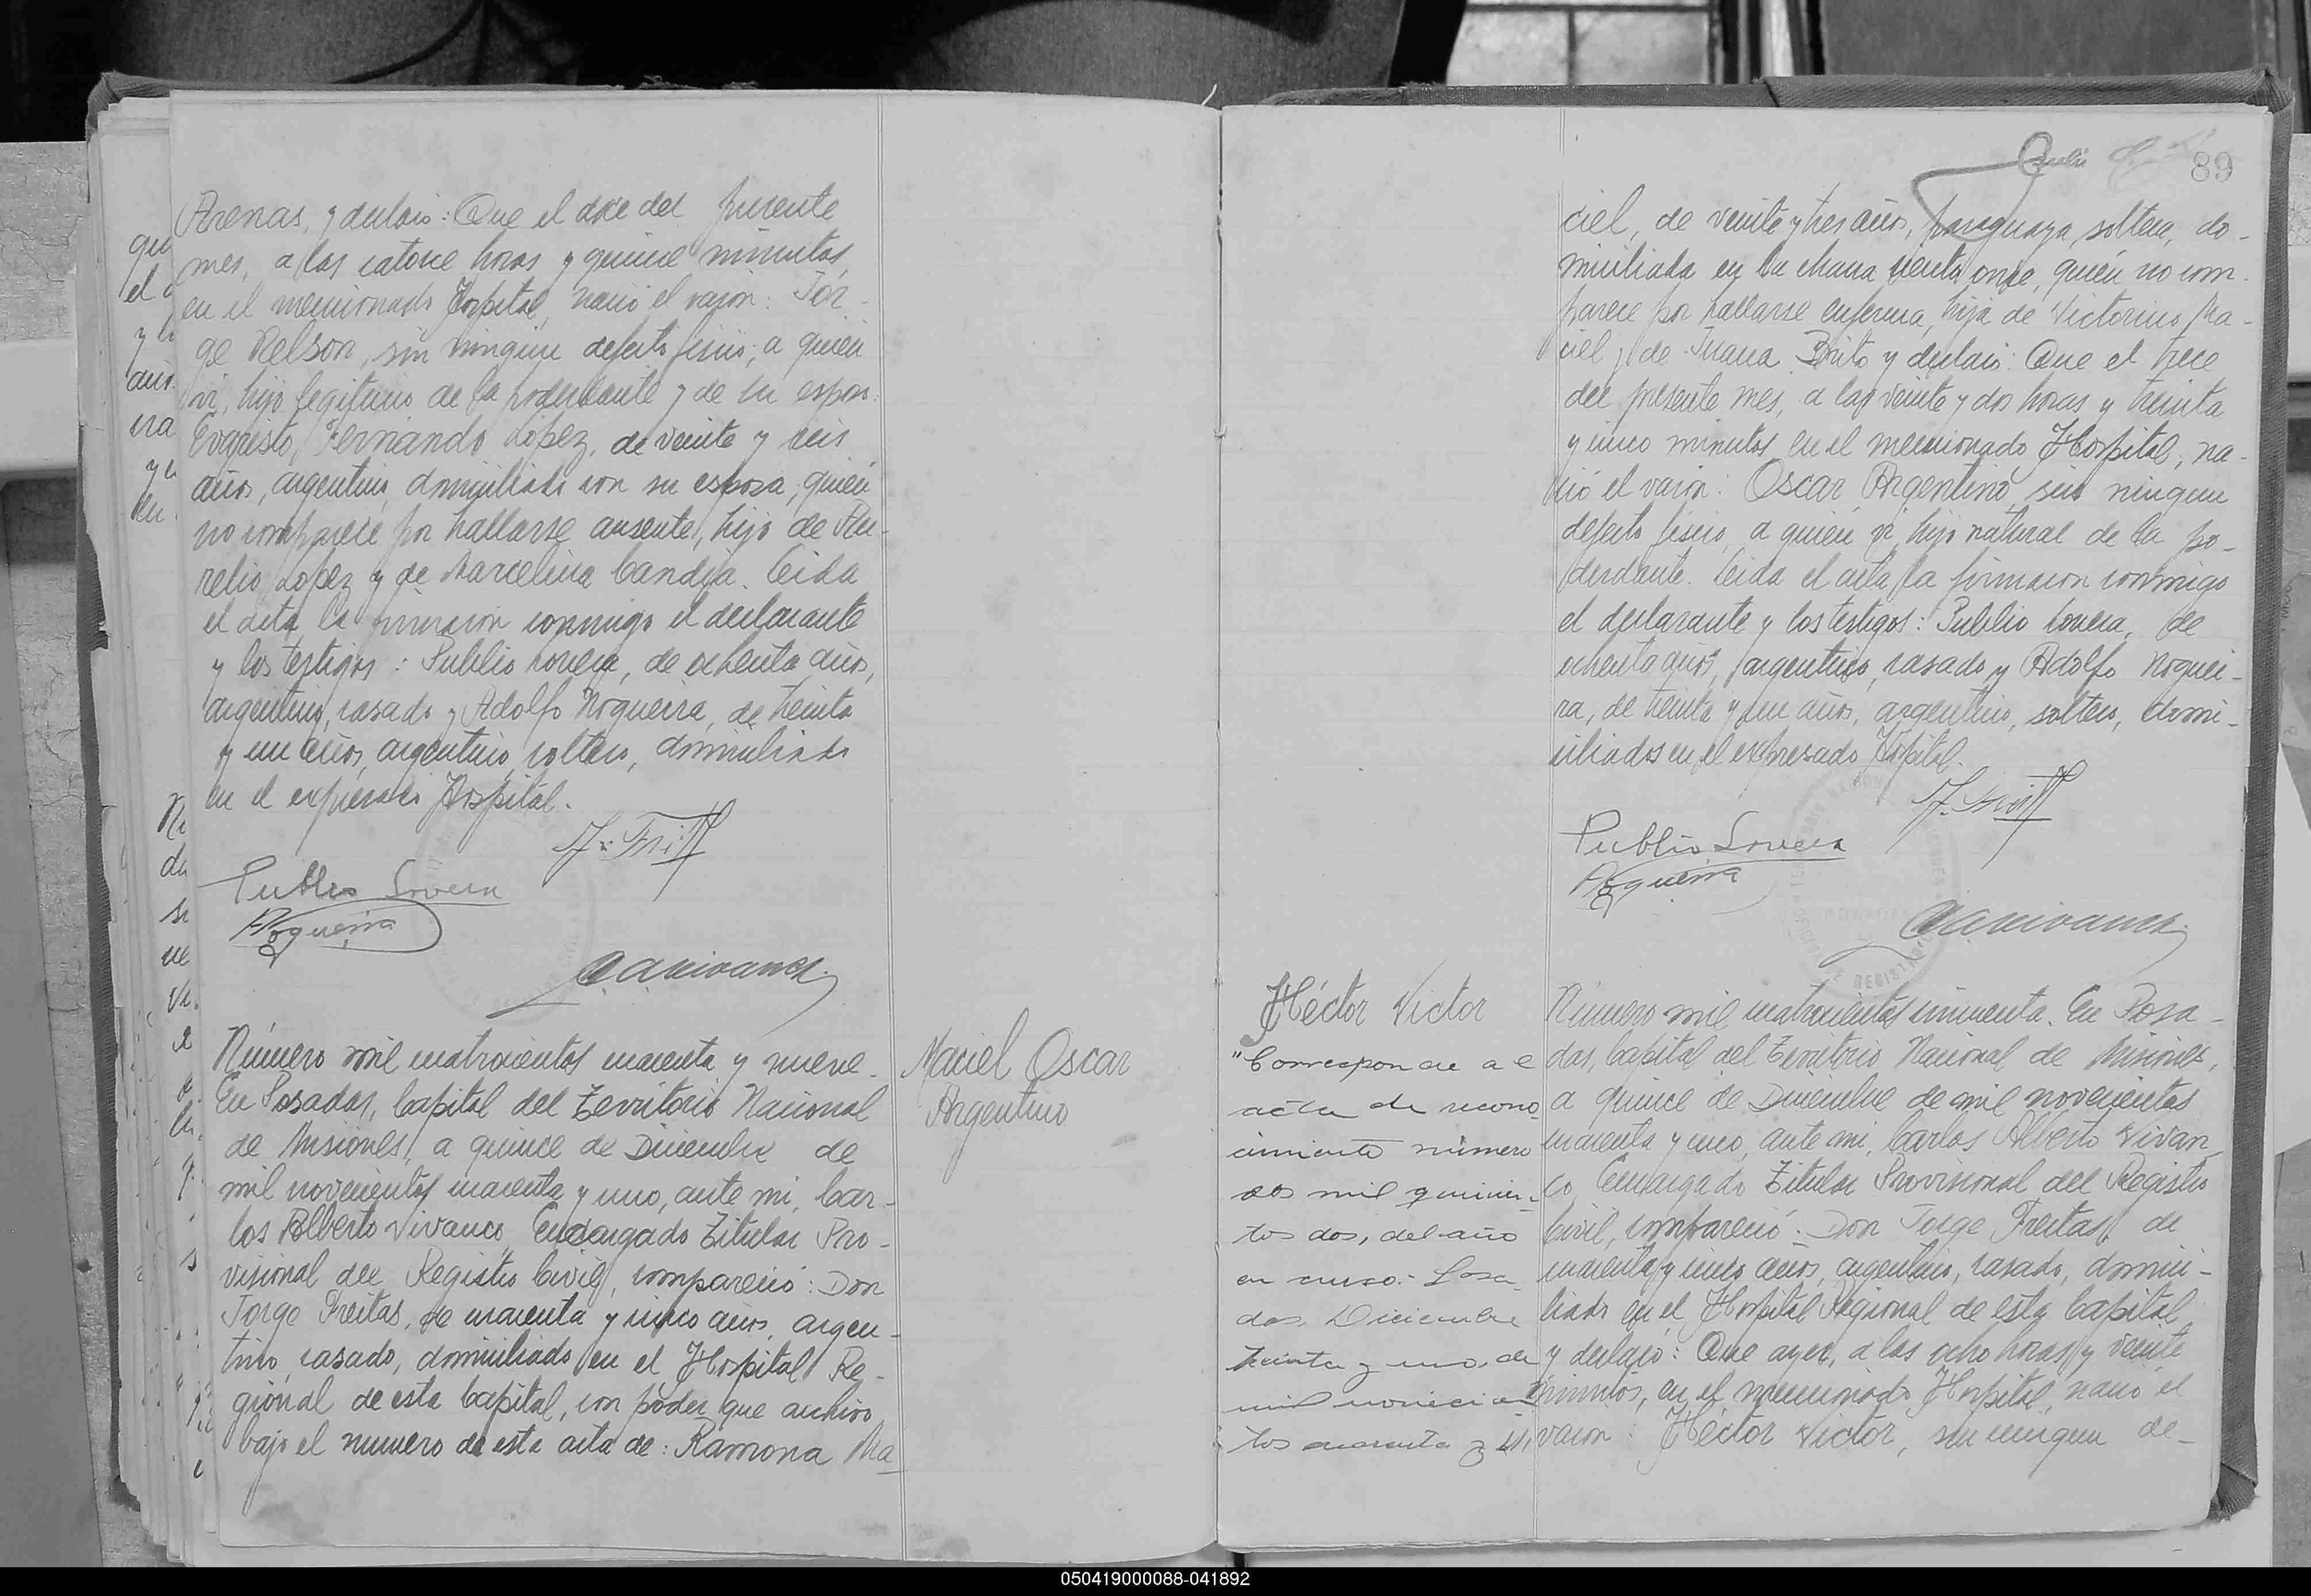 Arenas, y declaró: Que el doce del presente
mes, a las catorce horas y quince minutos,
en el mencionado Hospital, nació el varón: Jor-
ge Nelson, sin ningún defecto físico, a quién
ví, hijo legítimo de la poderdante y de su esposo:
Evaristo Fernando López, de veinte y seis
años, argentino, domiciliado con su esposa, quién
no comparece por hallarse ausente, hijo de Au-
relio López y de Marcelina Candia. Leida
el acta, la firmaron conmigo el declarante
y los testigos: Publio Lovera, de ochenta años,
argentino, casado y Adolfo Nogueira, de treinta
y un años, argentino, soltero, domiciliado
en el expresado Hospital.
Publio Lovera
Nogueira
Número mil cuatrocientos cuarenta y nueve.
En Posadas, Capital del Territorio Nacional
de Misiones, a quince de Diciembre de
mil novecientos cuarenta y uno, ante mi, Car-
los Alberto Vivanco, Encargado Titular Pro-
visional del Registro Civil, compareció: Don
Jorge Freitas, de cuarenta y cinco años, argen-
tino, casado, domiciliado en el Hospital Re-
gional de esta Capital, con poder que archivo
bajo el numero de esta acta de: Ramona Ma-
Maciel Oscar
Argentino
89
ciel, de veinte y tres años, paraguaya, soltera, do-
miciliada en la chacra ciento once, quién no com-
parece por hallarse enferma, hija de Victorino Ma-
ciel y de Juana Brito y declaró: Que el trece
del presente mes, a las veinte y dos horas y treinta
y cinco minutos, en el mencionado Hospital, na-
ció el varón: Oscar Argentino, sin ningun
defecto físico, a quién ví, hijo natural de la po-
derdante. Leida el acta, la firmaron conmigo
el declarante y los testigos: Publio Lovera, de
ochenta años, argentino, casado y Adolfo Noguei-
ra, de treinta y un años, argentino, soltero, domi-
ciliados en el expresado Hospital.
Publio Lovera
Nogueira
Héctor Victor
"Corresponde al
acta de recono-
cimiento número
dos mil quinien-
tos dos, del año
en curso.- Posa-
das, Diciembre
treinta y uno, de
mil novecien-
tos cuarenta y
Número mil cuatrocientos cincuenta. En Posa-
das, Capital del Territorio Nacional de Misiones,
a quince de Diciembre de mil novecientos
cuarenta y uno, ante mi, Carlos Alberto Vivan-
co, Encargado Titular Provisional del Registro
Civil, compareció: Don Jorge Freitas, de
cuarenta y cinco años, argentino, casado, domici-
liado en el Hospital Regional de esta Capital
y declaró: Que ayer, a las ocho horas y veinte
minutos, en el mencionado Hospital, nació el
varon: Héctor Victor, sin ningun de-
050419000088-041892